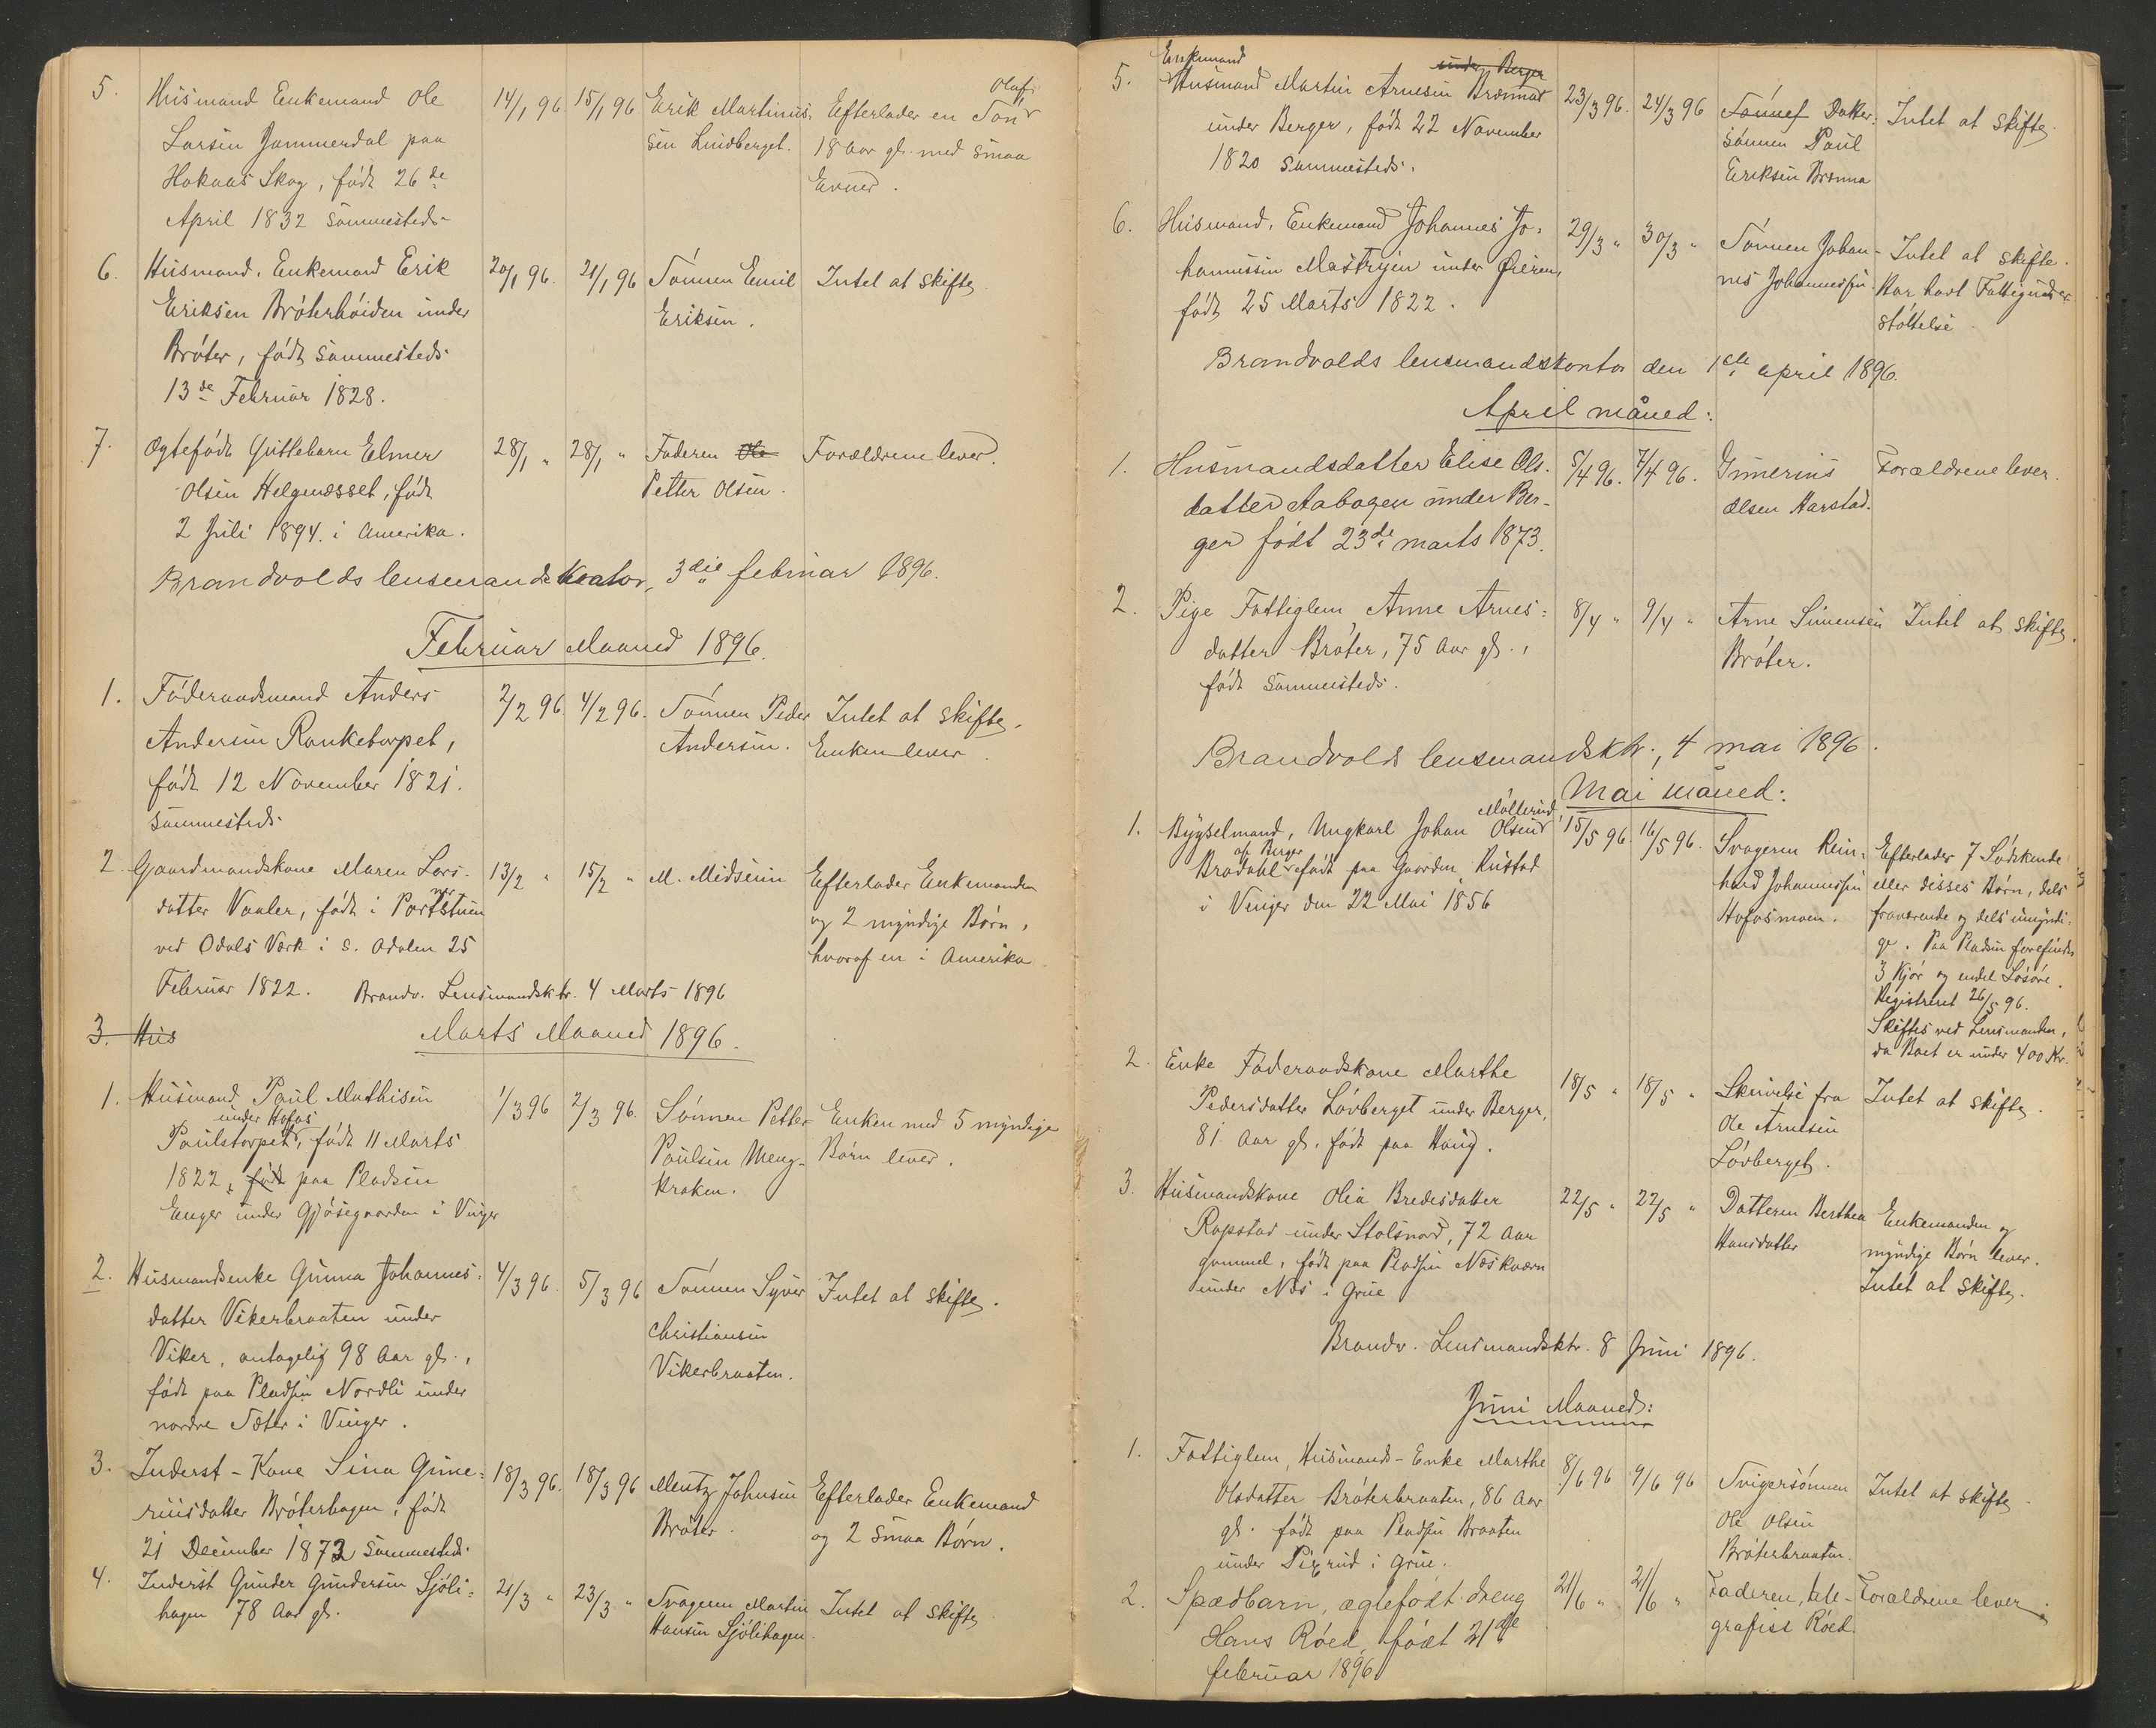 5. Husmand Enkemand Ole 14/1 96 15/1 96 Erik Martinus- Efterlader en Søn Olaf
Larsen Jammerdal paa sen Lindberget. 18 Aar gl. med smaa
Hokaas Skog, født 26de Evner.
April 1832 sammesteds.
6. Husmand, Enkemand Erik 20/1 96. 21/1 96 Sønnen Emil Intet at skifte
Eriksen Brøterhøiden under Eriksen.
Brøter, født sammesteds
13de Februar 1828.
7. Ogtefødt Guttebarn Elmer 28/1 " 28/1 " Faderen Ole Forældrene lever.
Olsen Helgenæsset, født Petter Olsen.
2 Juli 1894. i Amerika.
Brandvolds lensmandskontor, 3die februar 1896.
Februar Maaned 1896.
1. Føderaadsmand Anders 2/2 96. 4/2 96. Sønnen Peder Intet at skifte.
Andersen Ranketorpet, Andersen. Enken lever
født 12 November 1821.
sammesteds
2. Gaardmandskone Maren Lars- 13/2 " 15/2 " M. Midseim Efterlader Enkemanden
datter Vaaler, født i Portnerstuen og 2 myndige Børn,
ved Odals Værk i S. Odalen 25 hvoraf en i Amerika
Februar 1822. Brandv. Lensmandsktr. 4 Marts 1896
3. Hus Marts Maaned 1896.
1. Husmand Paul Mathisen 1/3 96 2/3 96. Sønnen Petter Enken med 5 myndige
under Hofos
Paulstorpet, født 11 Marts Paulsen Meng- Børn lever.
1822, født paa Pladsen kroken.
Enger under Gjøsegaarden i Vinger
2. Husmandsenke Gunna Johannes- 4/3 96. 5/3 96 Sønnen Syver Intet at skifte.
datter Vikerbraaten under Christiansen
Viker, antagelig 98 Aar gl., Vikerbraaten.
født paa Pladsen Nordli under
nordre Sæter i Vinger.
3. Inderst-Kone Sina Gune- 18/3 96. 18/3 96 Mentz Johnsen Efterlader Enkemand
riusdatter Brøterhagen, født Brøter. og 2 smaa Børn.
21 December 1873 sammesteds.
4. Inderst Gunder Gundersen Sjøli- 21/3 " 23/3 " Svogeren Martin Intet at skifte
hagen 78 Aar gl. Hansen Sjølihagen.
Enkemand under Berger
5. Husmand Martin Arnesen Brænna 23/3 96. 24/3 96 Sønnes Datter- Intet at skifte.
under Berger, født 22 November sønnen Paul
1820 sammesteds. Eriksen Brenna
6. Husmand, Enkemand Johannes Jo- 29/3 " 30/3 " Sønnen Johan- Intet at skifte.
hannessen Mastryen under Øieren, nes Johannessen. Har havt Fattigunder-
født 25 Marts 1822. støttelse.
Brandvolds lensmandskontor den 1ste april 1896.
April måned:
1. Husmandsdatter Elise Ols- 5/4 96. 7/4 96. Gunerius Forældrene lever.
datter Aabogen under Ber- Olsen Harstad.
ger født 23de marts 1873.
2. Pige Fattiglem, Anne Arnes- 8/4 " 9/4 " Arne Simensen Intet at skifte.
datter Brøter, 75 Aar gl., Brøter.
født sammesteds.
Brandvolds lensmandsktr., 4 mai 1896.
Mai måned:
1. Bygselmand, Ungkarl Johan Olsen Møllerud 15/5 96. 16/5 96. Svogeren Rein- Efterlader 7 Sødskende
af Berger
Bradahl født paa Gaarden Rustad hard Johannessen eller disses Børn, dels
i Vinger den 22 Mai 1856 Hofosmoen. fraværende og dels umyndi-
ge. Paa Pladsen forefindes
3 Kjør og endel Løsøre.
Registreret 26/5 96.
Skiftes ved Lensmanden,
da Boet er under 400 Kr.
2. Enke Føderaadskone Marthe 18/5 " 18/5 " Skrivelse fra Intet at skifte.
Pedersdatter Løvberget under Berger, Ole Arnesen
81 Aar gl. født paa Haug. Løvberget.
3. Husmandskone Olea Bredesdatter 22/5 " 22/5 " Datteren Berthea Enkemanden og
Rapstad under Stolsnord, 72 Aar Hansdatter myndige Børn lever.
gammel, født paa Pladsen Næskværn Intet at skifte.
under Næs i Grue
Brandv. Lensmandsktr. 8 Juni 1896.
Juni Maaned:
1. Fattiglem, Husmands-Enke Marthe 8/6 96 9/6 96 Svigersønnen Intet at skifte.
Olsdatter Brøterbraaten, 86 Aar Ole Olsen
gl. født paa Pladsen Braaten Brøterbraaten.
under Pixrud i Grue.
2. Spædbarn, ægtefødt dreng 21/6 " 21/6 " Faderen, tele- Forældrene lever.
Hans Røed, født 21de grafist Røed.
februar 1896.